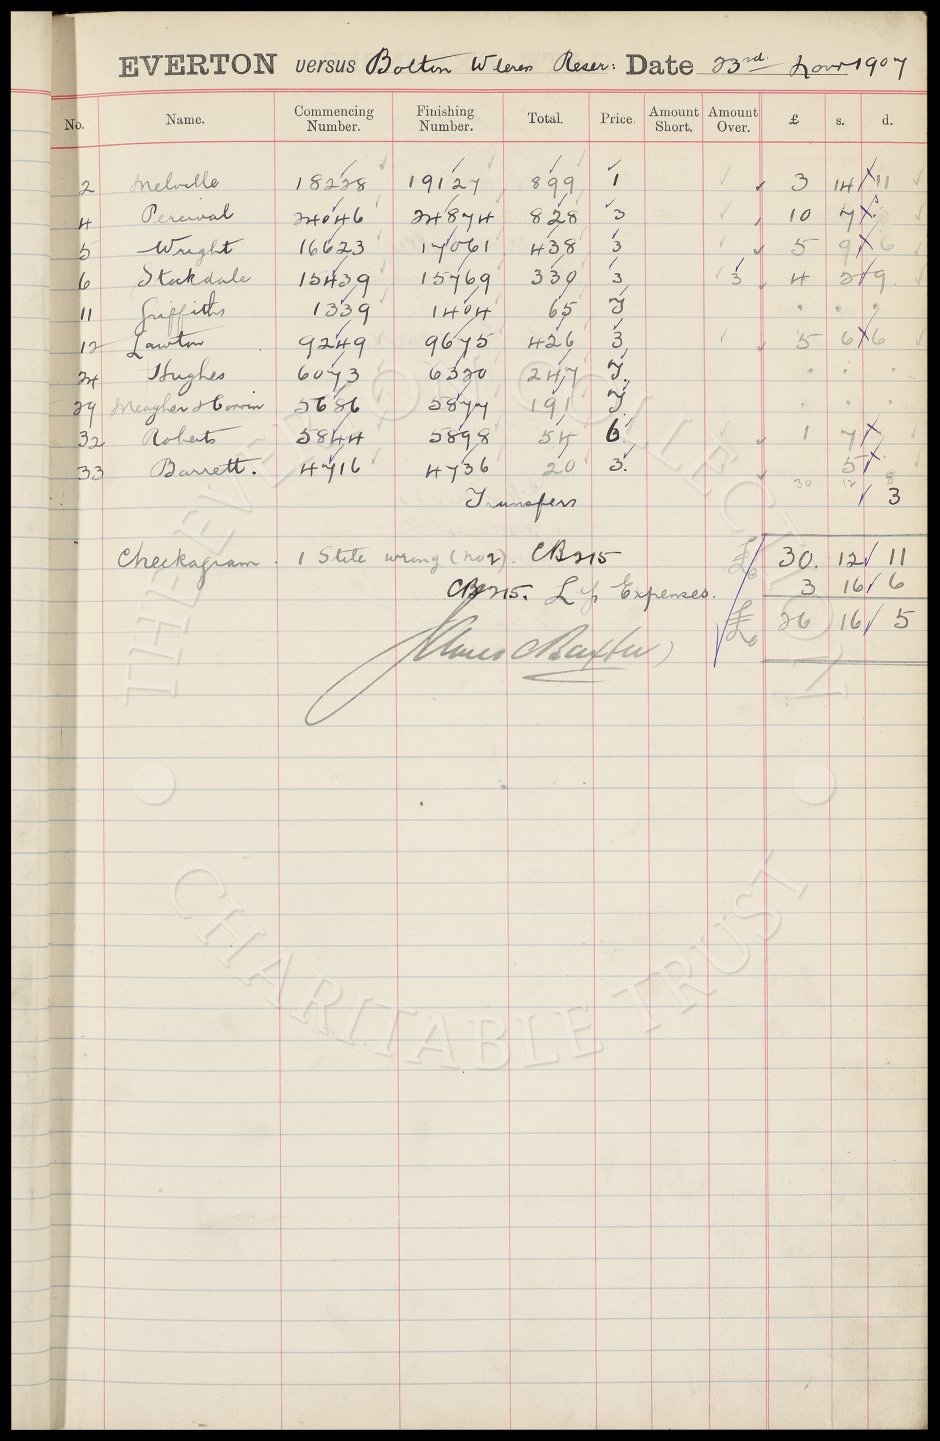 EVERTON versus Bolton Wders Reser: Date 23rd Novr 1907
No. Name. Commencing Number. Finishing Number. Total. Price. Amount Short. Amount Over. £ s. d.
2 Melville 18228 19127 899 1 3 14 11
4 Percival 24046 24874 828 3 10 7
5 Wright 16623 17061 438 3 5 9 6
6 Stockdale 15439 15769 330 3 3 4 2 9
11 Griffiths 1339 1404 65 T
12 Lawton 9249 9675 426 3 5 6 6
24 Hughes 6073 6320 247 T.
29 Meagher & Corrin 5686 5877 191 T
32 Roberts 5844 5898 54 6 1 7
33 Barrett. 4716 4736 20 3. 5
30 12 8
Transfers 3
Checkagram 1 Stile wrong (no 2). CB 215 £ 30. 12 11
CB 215. L Expenses. 3 16 6
£ 26 16 5
James Baxter
THE EVERTON COLLECTION
CHARITABLE TRUST